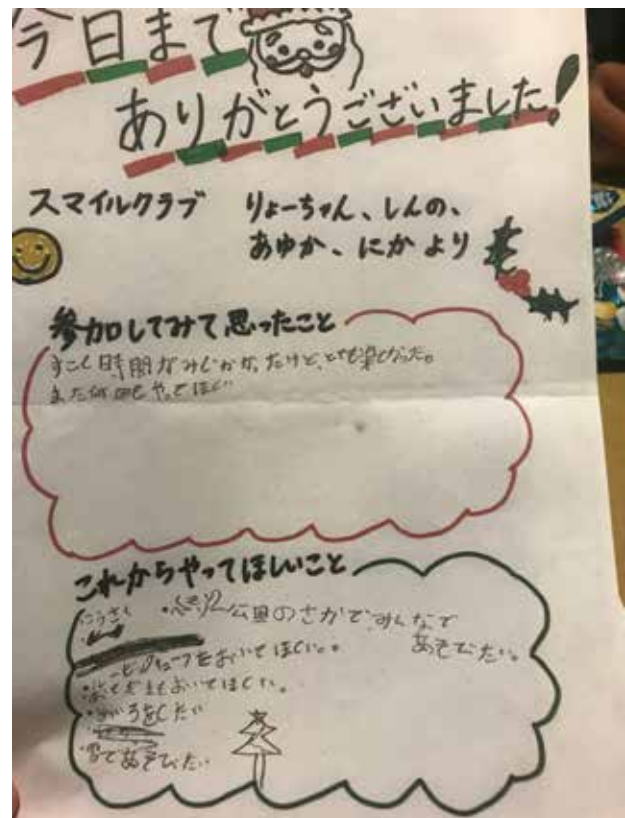 今日まで
ありがとうございました!
スマイルクラブ りょーちゃん、しんの、
あゆか、にか より
参加してみて思ったこと
すこし時間がみじかかったけど、とても楽しかった。
また何回もやってほしい
これからやってほしいこと
こうさく
公園のさかで、みんなで
あそびたい。
をおいてほしい。
もおいてほしい。
をしたい
雪であそびたい